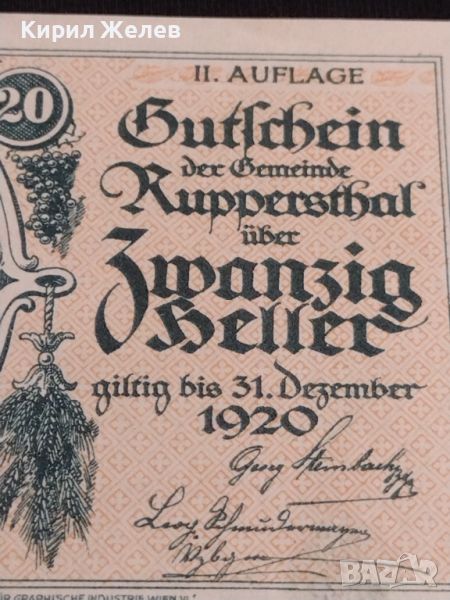 Кирил Желев
20
II. AUFLAGE
Gutschein
der Gemeinde
Ruppersthal
über
Zwanzig
Heller
giltig bis 31. Dezember
1920
Georg Steinbach
Leop. Schmiedermayer
GRAPHISCHE INDUSTRIE WIEN VI.
BAZAR